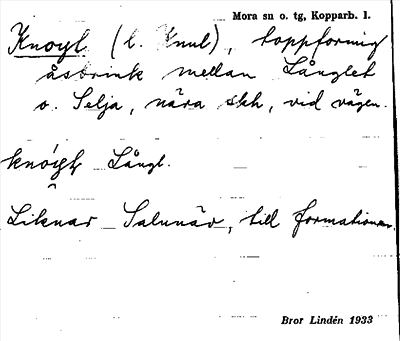 Mora sn o. tg, Kopparb. l.
Knoyl (l. Knul), toppformig
åsbrink mellan Långlet
o. Selja, nära skh, vid vägen.
Långl.
Liknar Salunäv, till formationen.
Bror Lindén 1933